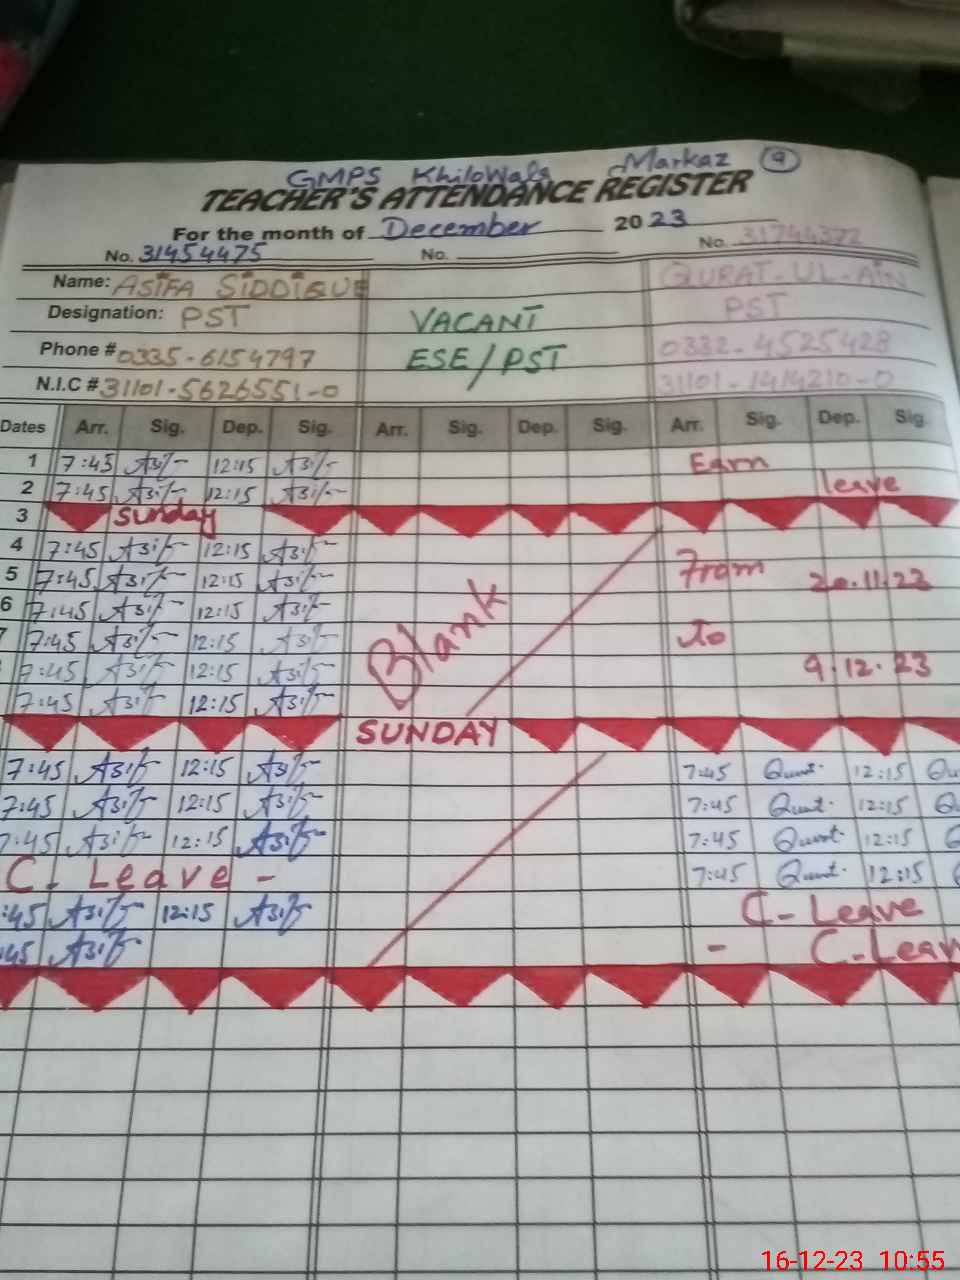 GMPS KhiloWala Markaz 9
TEACHER'S ATTENDANCE REGISTER
For the month of December 2023
No. 31454475 No. No. 31744372
Name: ASIFA SIDDIQUE QURAT-UL-AIN
Designation: PST VACANT PST
Phone # 0335-6154797 ESE/PST 0332-4525428
N.I.C # 31101-5626551-0 31101-1414210-0
Dates Arr. Sig. Dep. Sig. Arr. Sig. Dep. Sig. Arr. Sig. Dep. Sig.
1 7:45 Asif 12:15 Asif Earn
2 7:45 Asif 12:15 Asif leave
3 Sunday
4 7:45 Asif 12:15 Asif
5 7:45 Asif 12:15 Asif From 20.11.23
6 7:45 Asif 12:15 Asif Blank
7 7:45 Asif 12:15 Asif To
7:45 Asif 12:15 Asif 9.12.23
7:45 Asif 12:15 Asif
SUNDAY
7:45 Asif 12:15 Asif 7:45 Qurat. 12:15 Qu
7:45 Asif 12:15 Asif 7:45 Qurat. 12:15 Q
7:45 Asif 12:15 Asif 7:45 Qurat 12:15 Q
C- Leave - 7:45 Qurat. 12:15
:45 Asif 12:15 Asif C-Leave
45 Asif - C-Leav
16-12-23 10:55